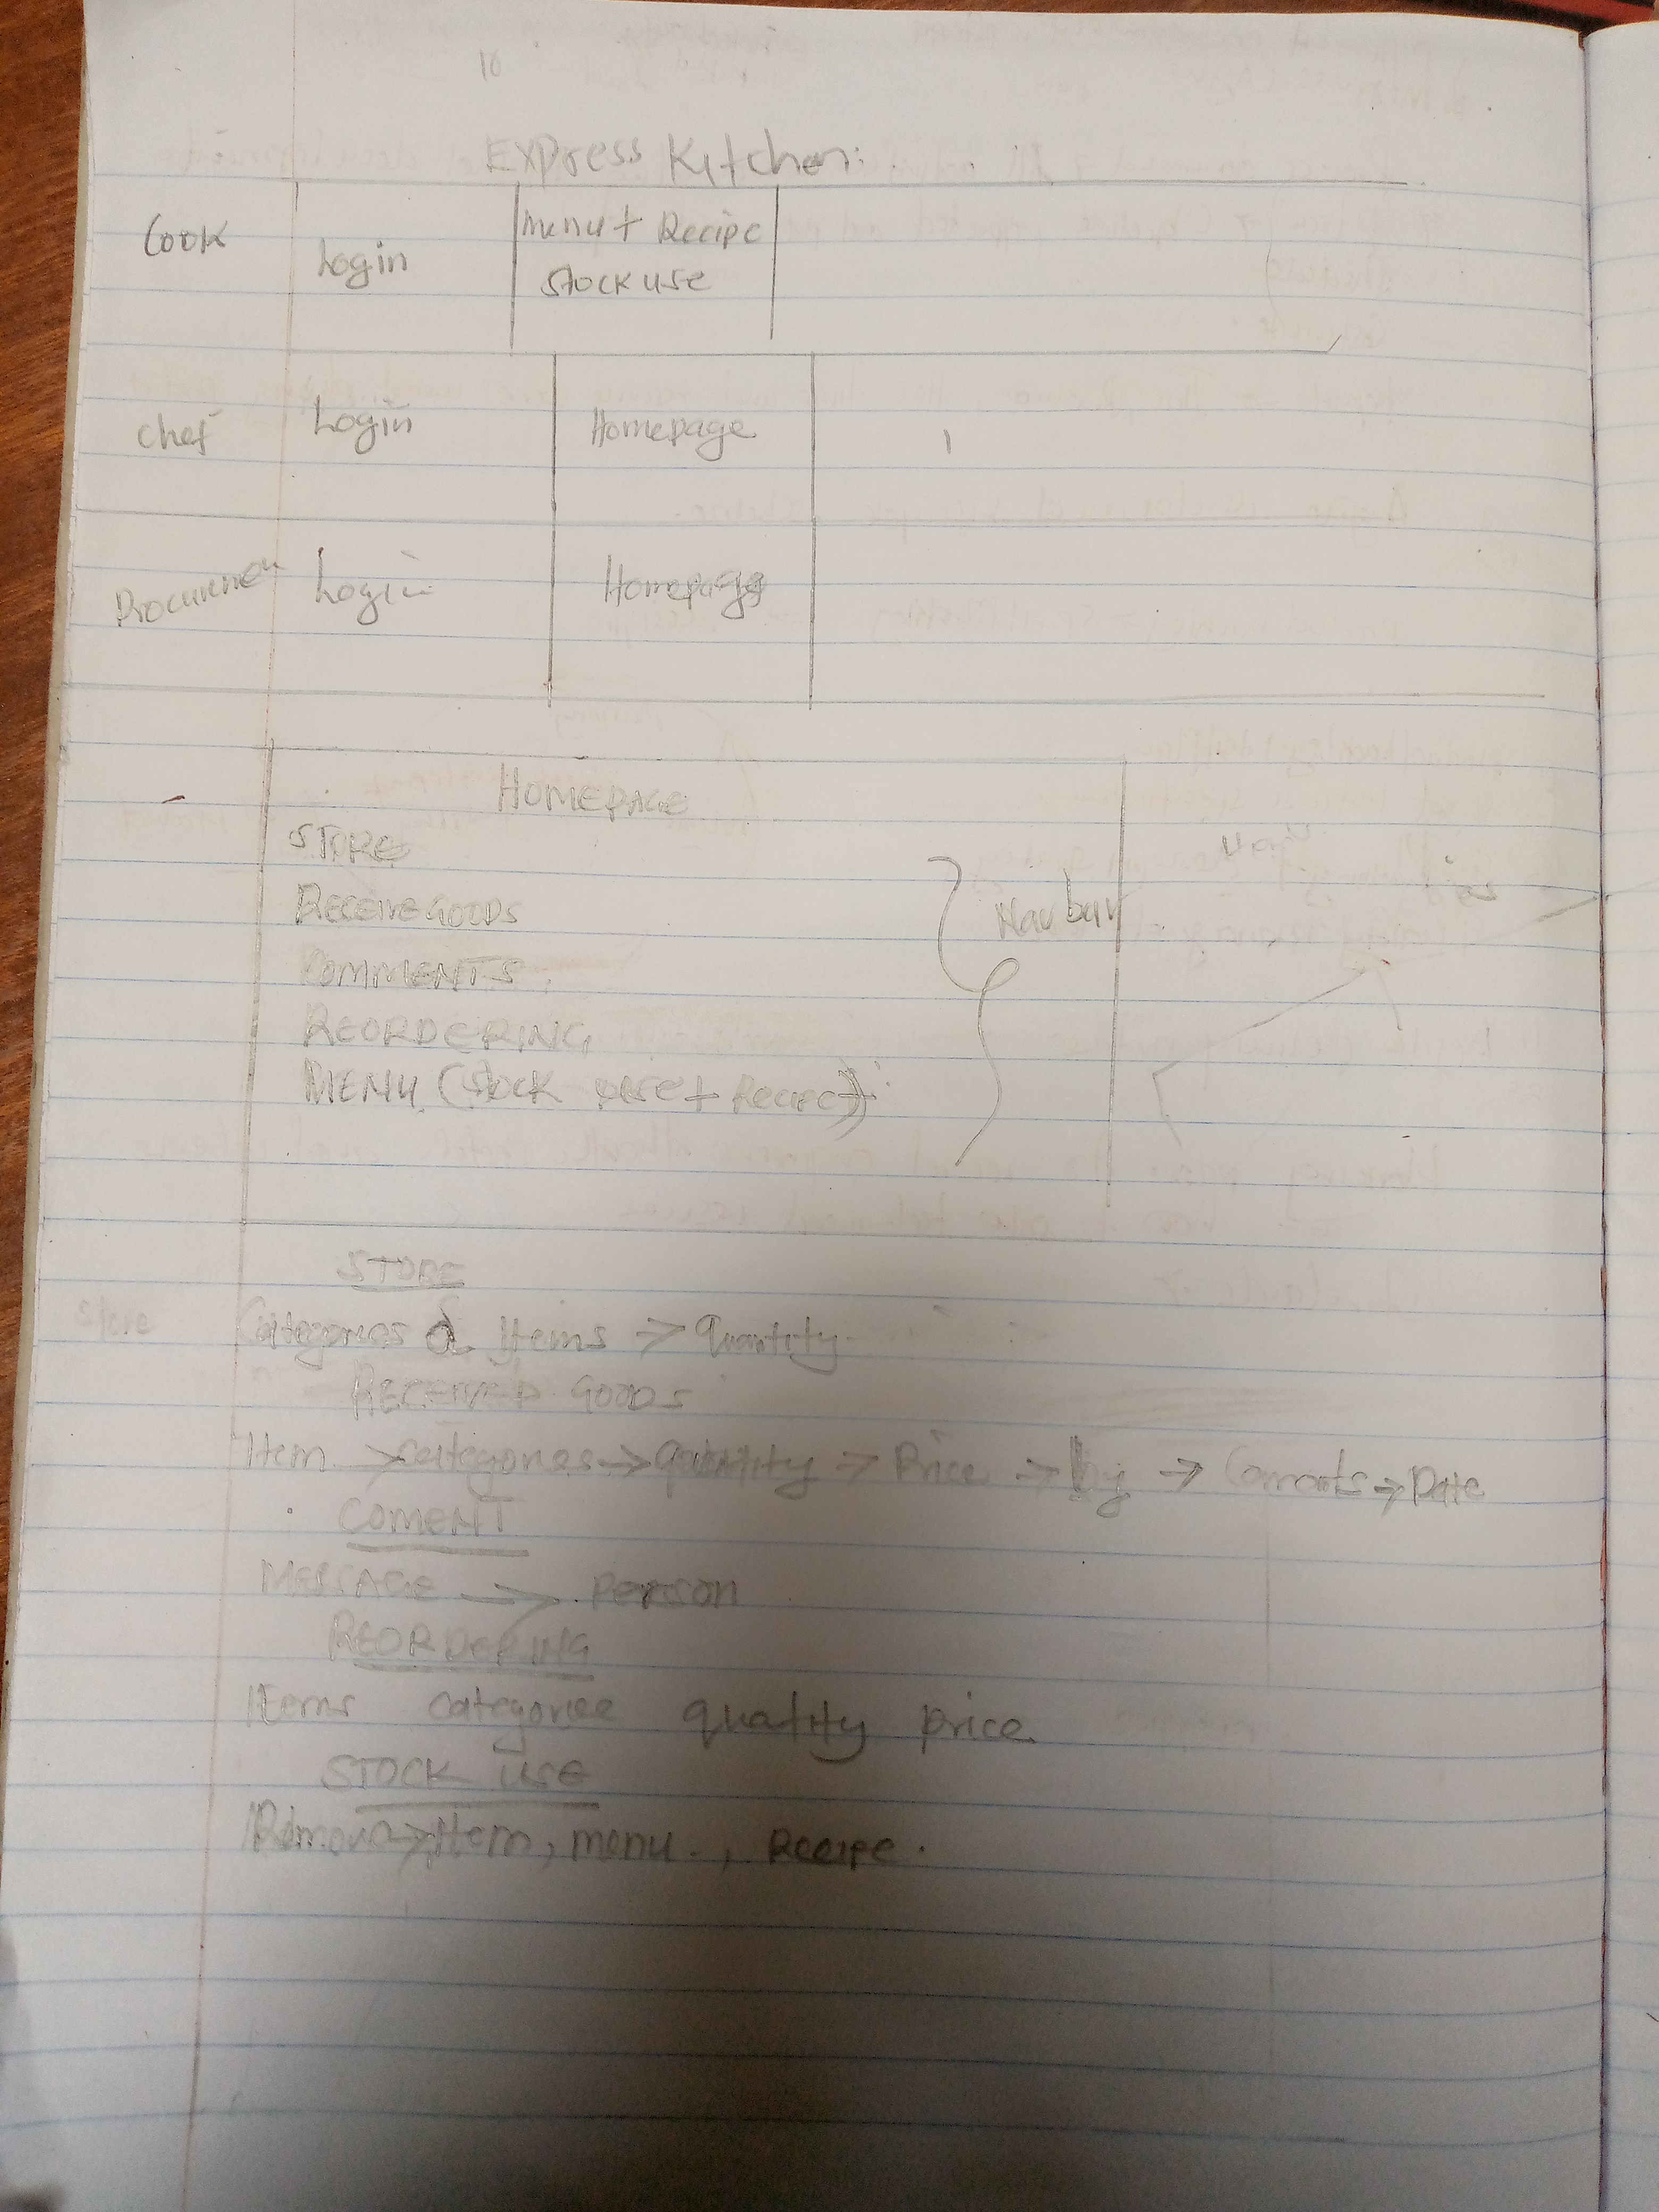 10
Express Kitchen:
Cook Login Menu + Recipe
Stock use
Chef Login Homepage
Procuremen Login Homepage
HOMEPAGE
STORE
RECEIVE GOODS
Navbar
COMMENTS
REORDERING
MENU (Stock use + Recipe)
STORE
Store Categories & Items > Quantity
RECEIVED GOODS
Item > Categories -> Quantity -> Price -> by -> Comments -> Date
COMENT
MESSAGE -> Person
REORDERING
Items categories quatity price
STOCK USE
Remove -> Item, menu, Recipe.